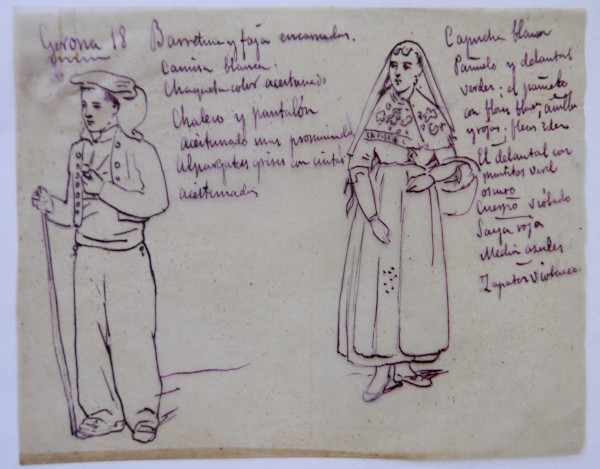 Gerona 18
Barretina y faja encarnadas.
Camisa blanca.
Chaqueta color aceitunado
Chaleco y pantalón
aceitunado mas pronunciado
Alpargatas grises con cintas
aceitunadas
Capucha blanca
Pañuelo y delantal
verdes; el pañuelo
con flores
y rojas;
El delantal con
puntitos verde
oscuro
Cuerpo
Saya roja
Medias azules
Zapatos